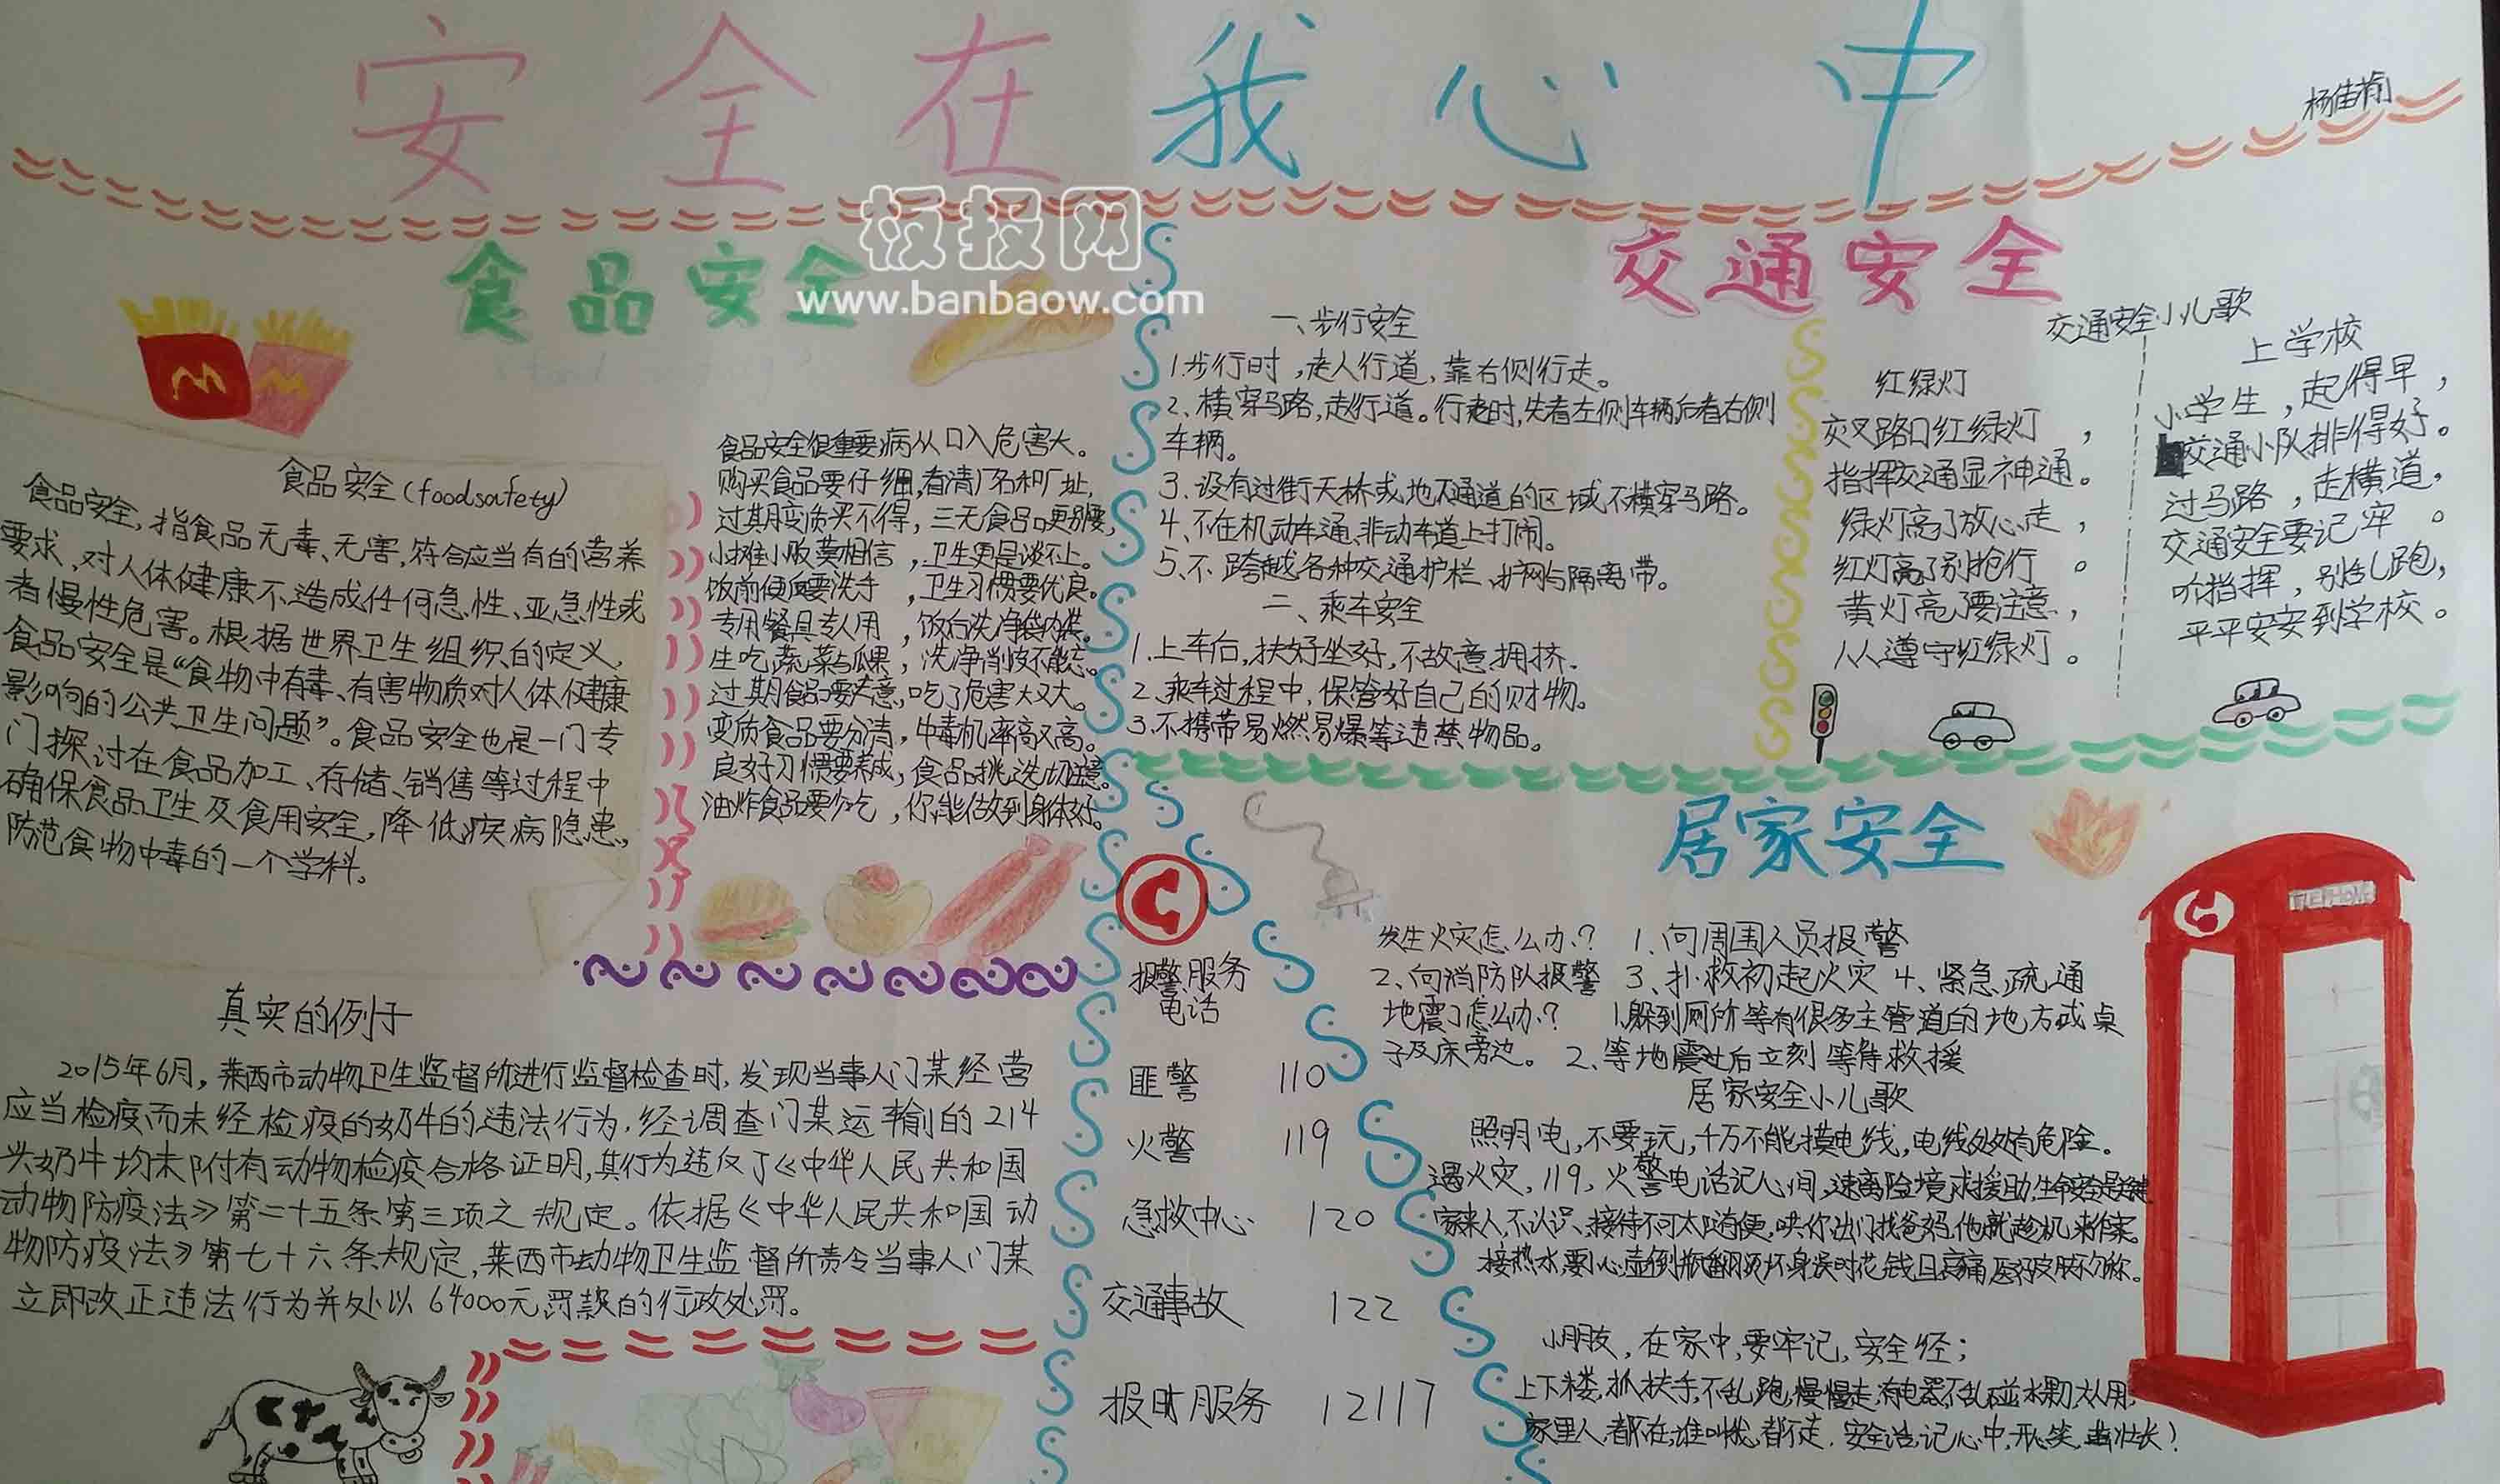 安全在我心中
杨佳
板报网
www.banbaow.com
食品安全
食品安全(foodsafety)
食品安全,指食品无毒、无害,符合应当有的营养
要求,对人体健康不造成任何急性、亚急性或
者慢性危害。根据世界卫生组织的定义,
食品安全是“食物中有毒、有害物质对人体健康
影响的公共卫生问题”。食品安全也是一门专
门探讨在食品加工、存储、销售等过程中
确保食品卫生及食用安全,降低疾病隐患,
防范食物中毒的一个学科。
食品安全很重要,病从口入危害大。
购买食品要仔细,看清厂名和厂址,
过期变质买不得,三无食品更别要,
小摊小贩莫相信,卫生更是谈不上。
饭前便面要洗手,卫生习惯要优良。
专用餐具专人用,饭后洗净
生吃蔬菜与瓜果,洗净削皮不能忘。
过期食品要关意,吃了危害大又大。
变质食品要分清,中毒机率高又高。
良好习惯要养成,食品挑选切注意。
油炸食品要少吃,你能做到身体好。
真实的例子
2015年6月,莱西市动物卫生监督所进行监督检查时,发现当事人门某经营
应当检疫而未经检疫的奶牛的违法行为,经调查门某运输的214
头奶牛均未附有动物检疫合格证明,其行为违反了《中华人民共和国
动物防疫法》第二十五条第三项之规定。依据《中华人民共和国动
物防疫法》第七十六条规定,莱西市动物卫生监督所责令当事人门某
立即改正违法行为并处以64000元罚款的行政处罚。
交通安全
一、步行安全
1.步行时,走人行道,靠右侧行走。
2、横穿马路,走行道。行走时,先看左侧车辆,后看右侧
车辆。
3、设有过街天桥或地下通道的区域不横穿马路。
4、不在机动车通、非动车道上打闹。
5、不跨越各种交通护栏、护网与隔离带。
二、乘车安全
1.上车后,扶好坐好,不故意拥挤.
2、乘车过程中,保管好自己的财物。
3.不携带易燃易爆等违禁物品。
交通安全小儿歌
红绿灯
交叉路口红绿灯,
指挥交通显神通。
绿灯亮了放心走,
红灯亮了别抢行。
黄灯亮了要注意,
人人遵守红绿灯。
上学校
小学生,起得早,
交通小队排得好。
过马路,走横道,
交通安全要记牢。
听指挥,别乱跑,
平平安安到学校。
报警服务
电话
匪警 110
火警 119
急救中心 120
交通事故 122
报时服务 12117
居家安全
TELEPHONE
发生火灾怎么办? 1.向周围人员报警
2、向消防队报警 3、扑救初起火灾 4、紧急疏通
地震了怎么办? 1.躲到厕所等有很多主管道的地方或桌
子及床旁边。 2、等地震过后立刻等待救援
居家安全小儿歌
照明电,不要玩,千万不能摸电线,电线处处有危险。
遇火灾,119,火警电话记心间,速离险境求援助,生命安全是关键
家来人,不认识,接待不可太随便,哄你出门找爸妈,他就趁机来作案。
接热水,要小心,壶倒瓶翻
小朋友,在家中,要牢记,安全经;
上下楼,抓扶手,不乱跑,慢慢走,有电器,不乱碰
家里人,都不在,谁叫我,都不走.安全法,记心中,